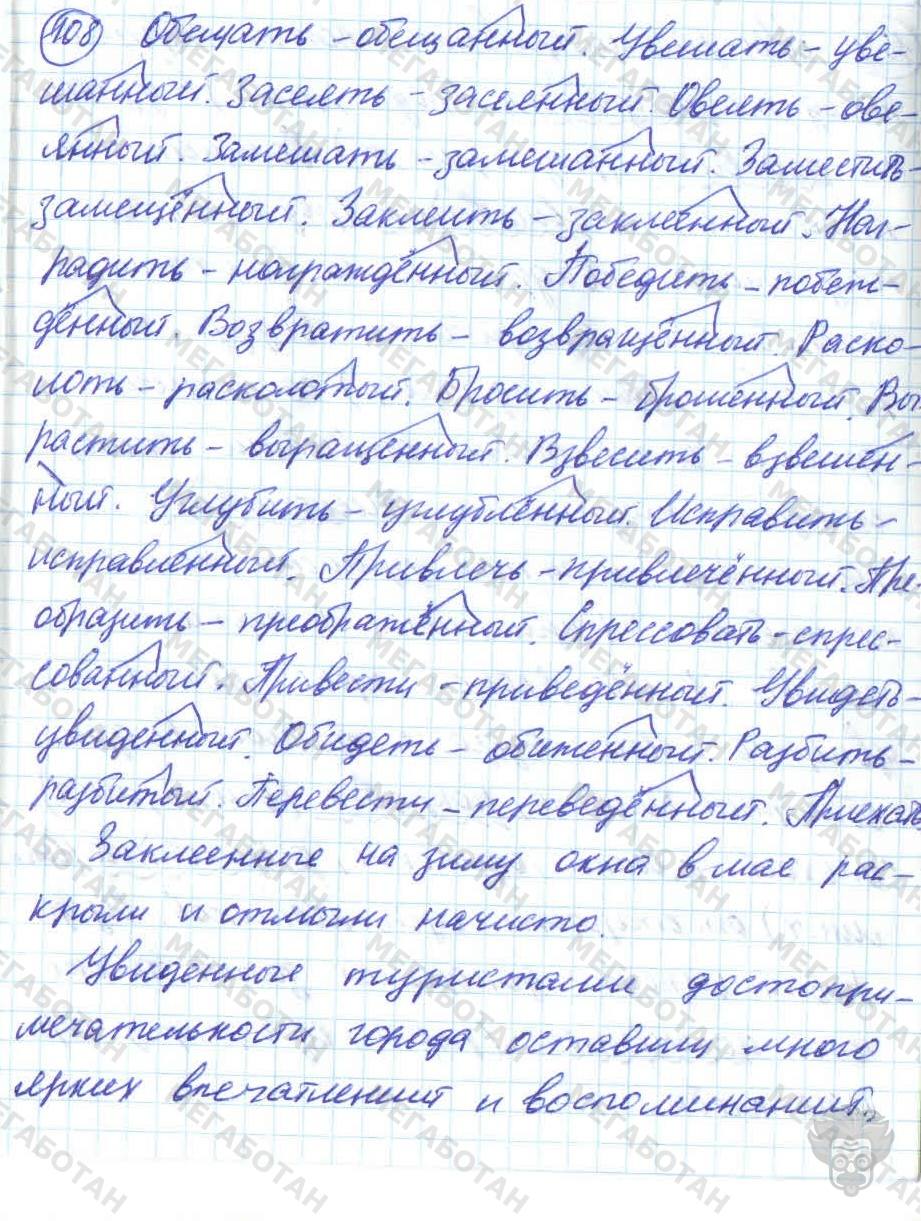 108 Обещать - обещанный. Увешать - уве-
шанный. Засеять - засеянный. Овеять - ове-
янный. Замешать - замешанный. Заместить -
замещённый. Заклеить - заклеенный. Наг-
радить - награждённый. Победить - побеж-
дённый. Возвратить - возвращённый. Раско-
лоть - расколотый. Бросить - брошенный. Вы
растить - выращенный. Взвесить - взвешен-
ный. Углубить - углублённый. Исправить -
исправленный. Привлечь - привлечённый. Пре-
образить - преображённый. Спрессовать - спрес-
сованный. Привести - приведённый. Увидеть -
увиденный. Обидеть - обиженный. Разбить -
разбитый. Перевести - переведённый. Приехать
Заклеенные на зиму окна в мае рас-
крыли и отмыли начисто.
Увиденные туристами достопри-
мечательности города оставили много
ярких впечатлений и воспоминаний.
МЕГАБОТАН